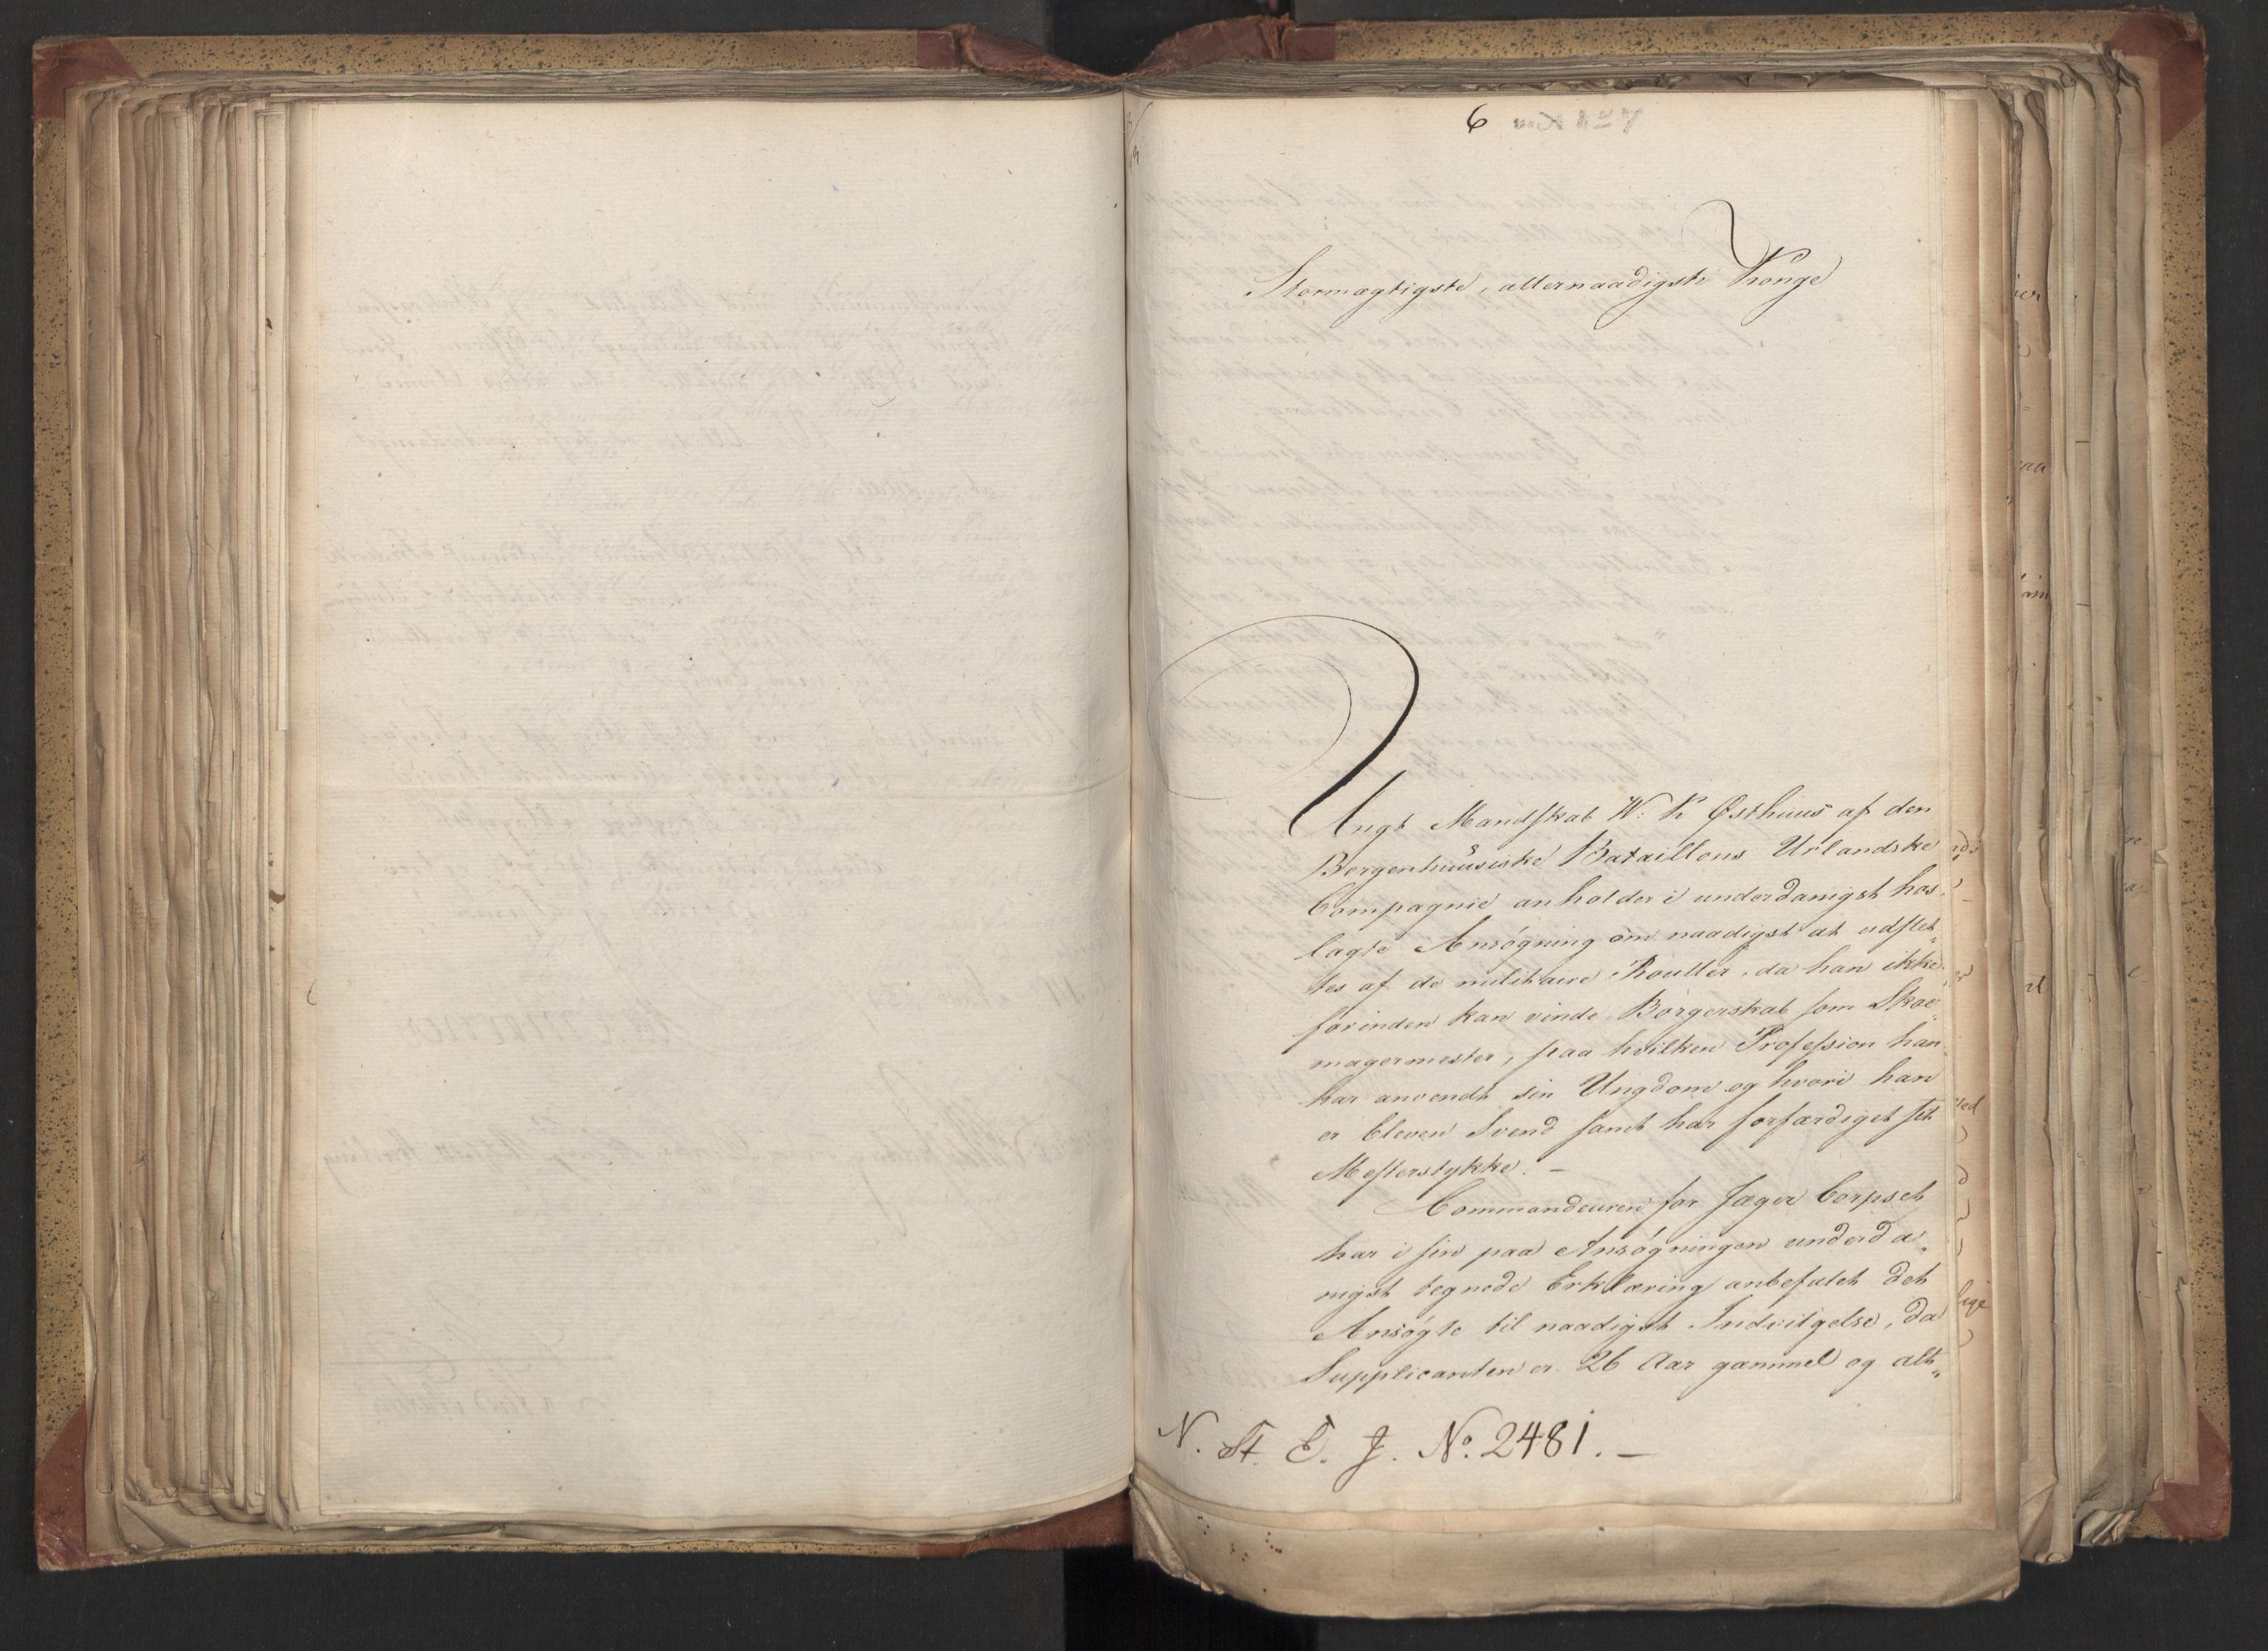 6
Stormægtigste, allernaadigste Konge
Ungt Mandskab W: K Østhuus af den
Bergenhuusiske Bataillons Urlandske
Compagnie anholder i underdanigst hos-
lagte Ansøgning om naadigst at udslet„
tes af de militaire Rouller, da han ikke
forinden kan vinde Borgerskab som Skoe„
magermester, paa hvilken Profession han
har anvendt sin Ungdom og hvori han
er bleven Svend samt har forfærdiget sit
Mesterstykke. –
Commandeuren for Jæger Corpset
har i sin paa Ansøgningen underda„
nigst tegnede Erklæring anbefalet det
Ansøgte til naadigst Indvilgelse, da
Supplicanten er 26 Aar gammel og alt„
N. St. E. J. No. 2481. –